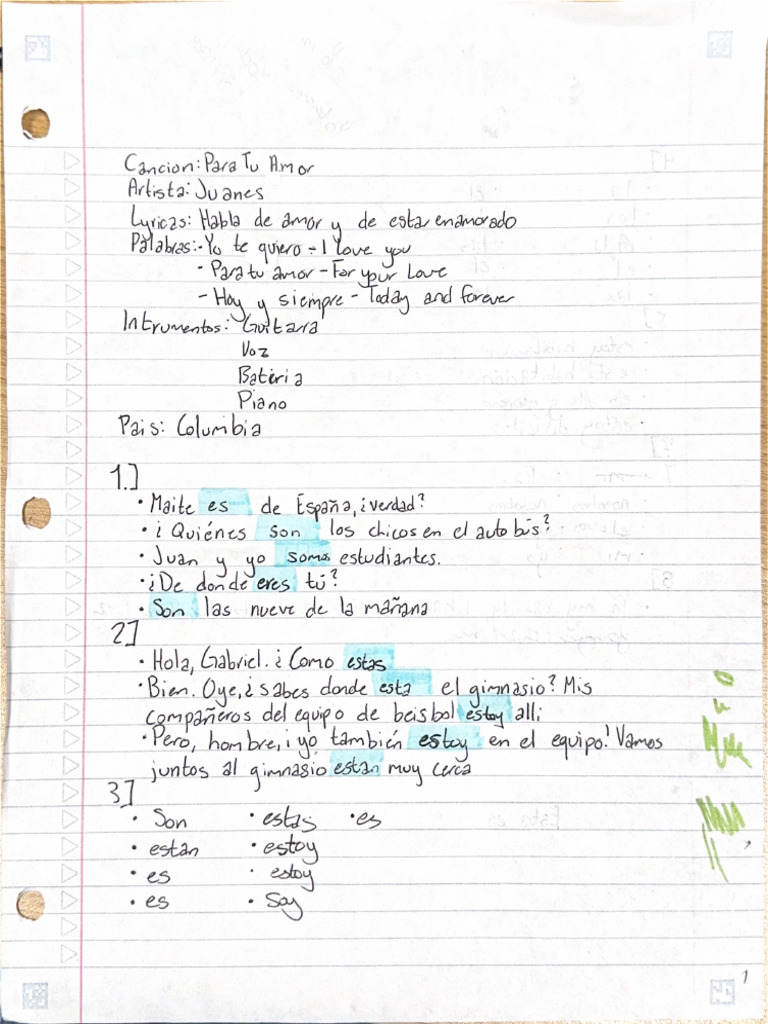 Cancion: Para Tu Amor
Artista: Juanes
Lyricas: Habla de amor y de estar enamorado
Palabras:- Yo te quiero - I Love you
- Para tu amor - For your Love
- Hoy y siempre - Today and forever
Intrumentos: Guitarra
Voz
Bateria
Piano
Pais: Columbia
1.]
• Maite es de España, ¿verdad?
• ¿Quiénes son los chicos en el autobús?
• Juan y yo somos estudiantes.
• ¿De donde eres tú?
• Son las nueve de la mañana
2]
• Hola, Gabriel. ¿Como estas
• Bien. Oye, ¿sabes donde esta el gimnasio? Mis
compañeros del equipo de beisbol estoy alli
• Pero, hombre, ¡yo también estoy en el equipo! Vamos
juntos al gimnasio estan muy cerca
3]
• Son • estas • es
• estan • estoy
• es • estoy
• es • Soy
1